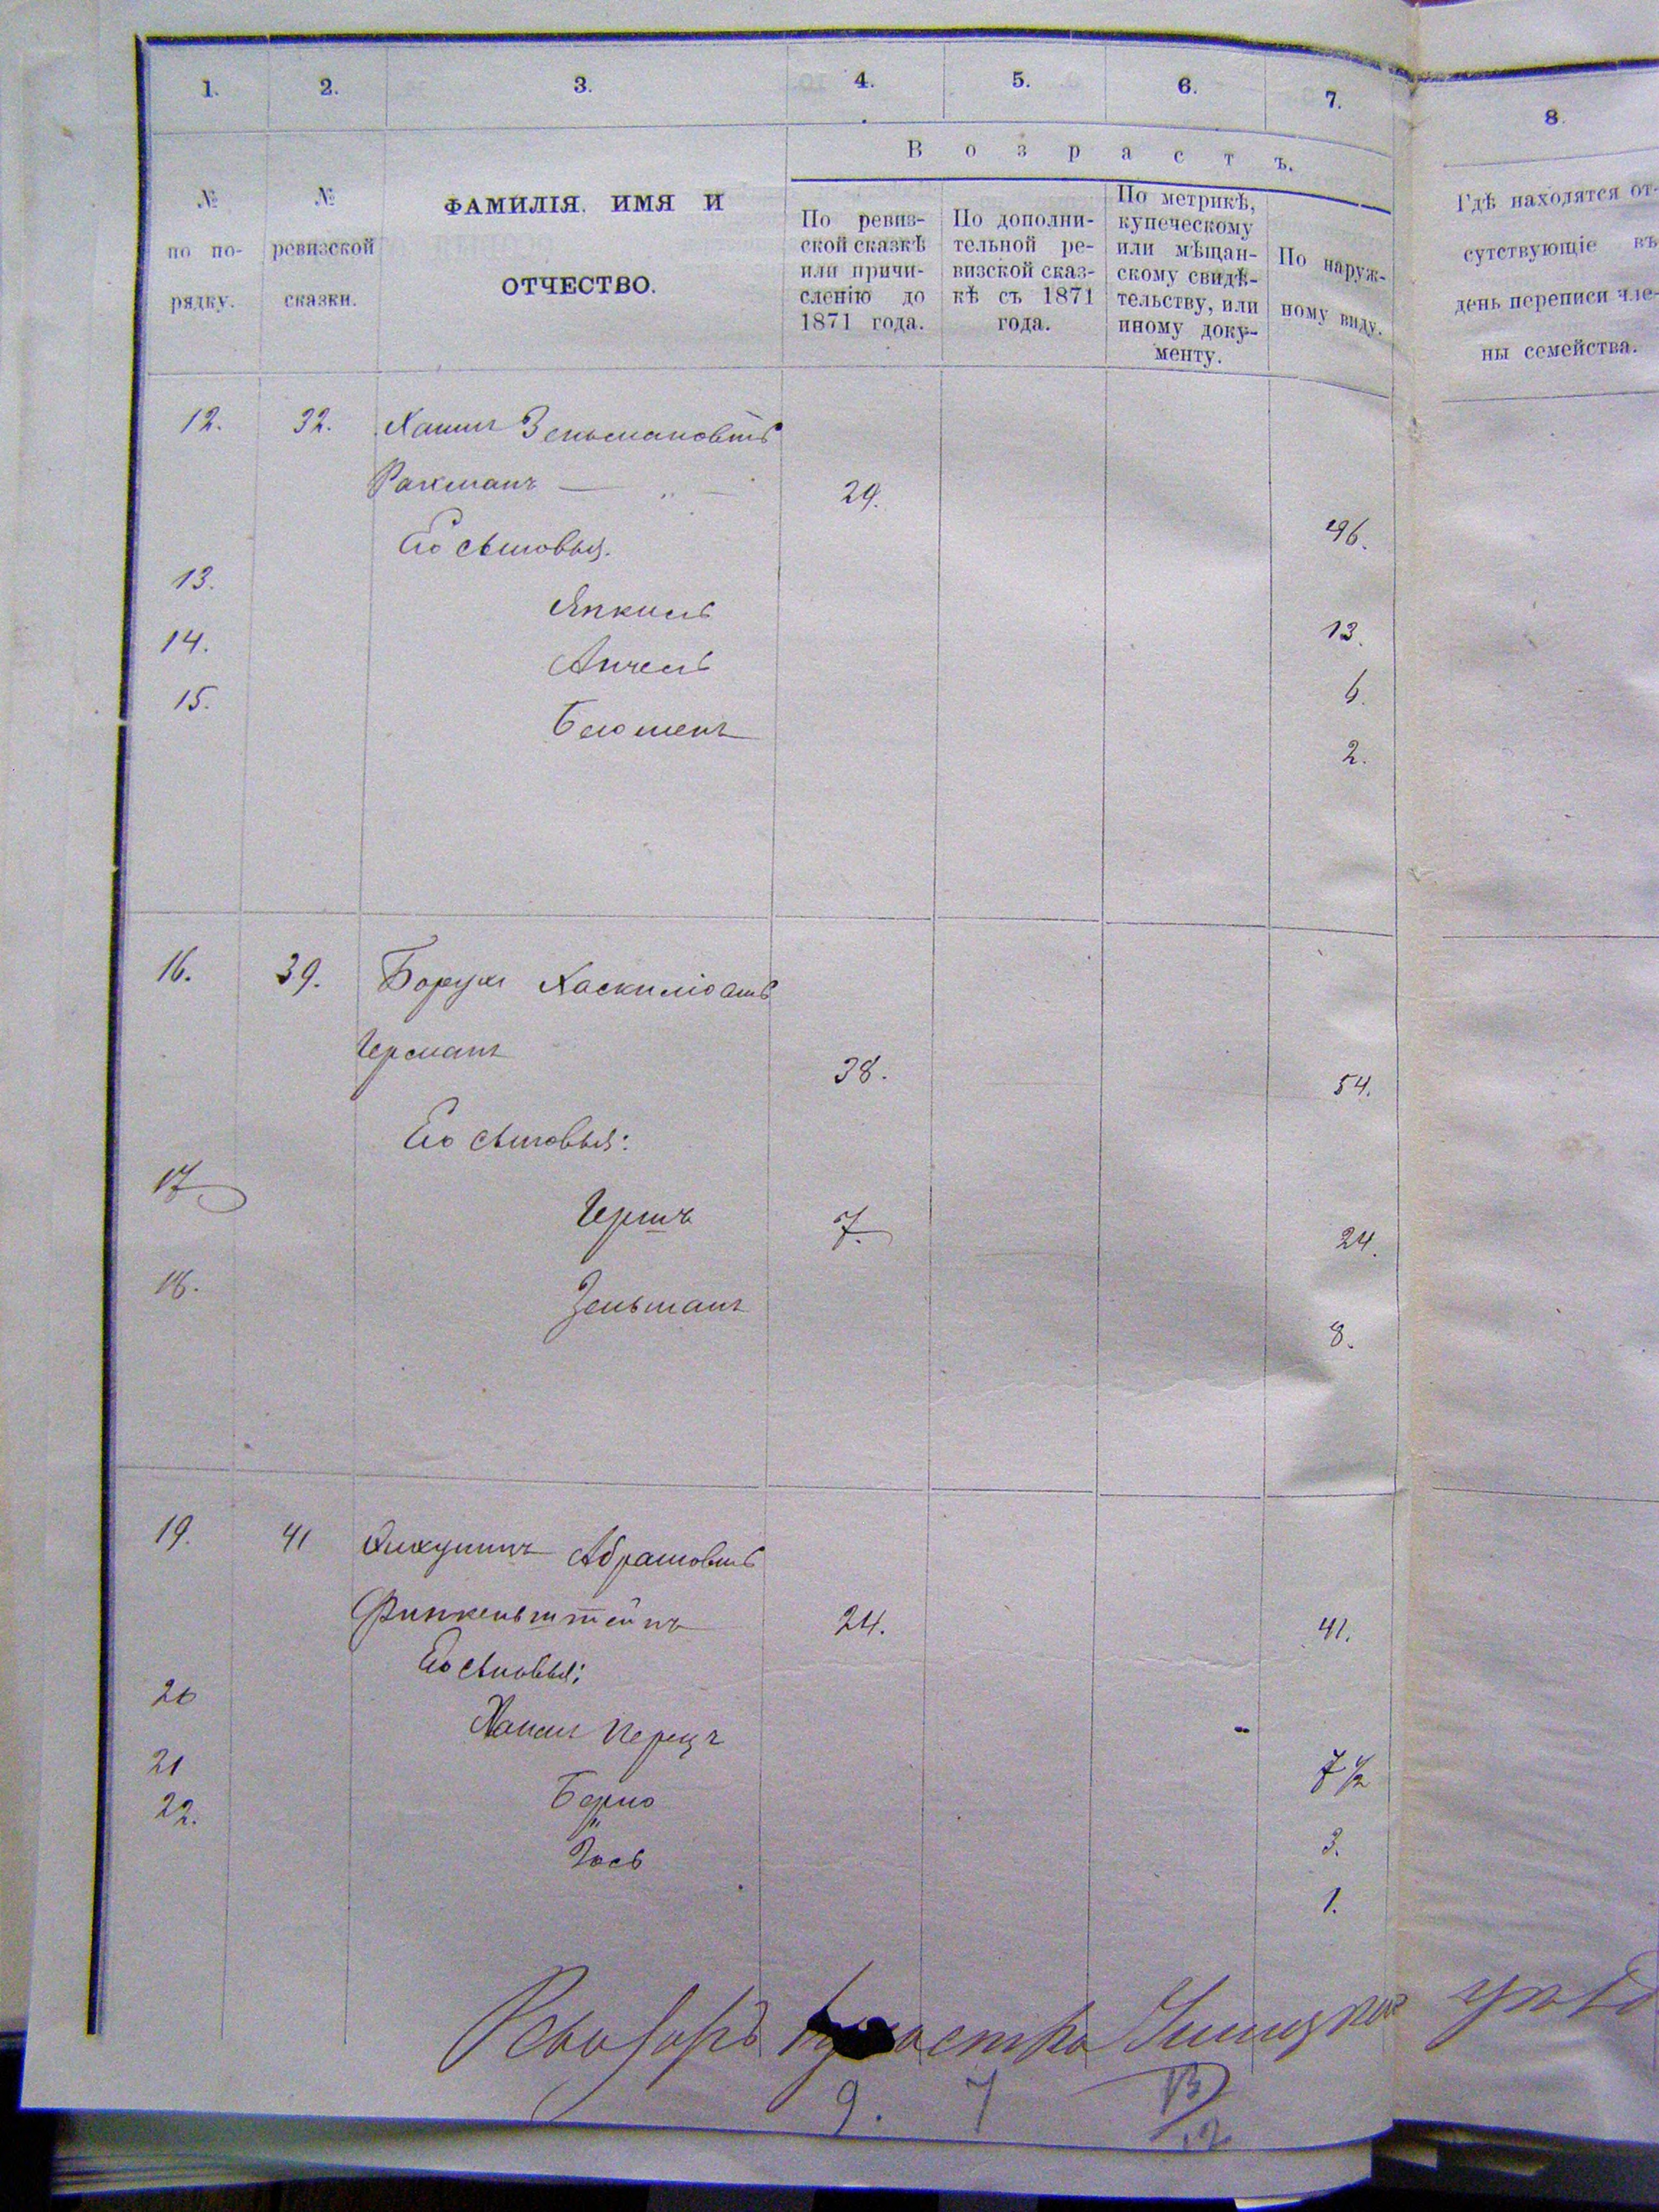 1. 2. 3. 4. 5. 6. 7. 8.
Возрастъ.
№ по порядку.
№ ревизской сказки.
ФАМИЛІЯ, ИМЯ И
ОТЧЕСТВО.
По ревиз-
ской сказкѣ
или причи-
сленію до
1871 года.
По дополни-
тельной ре-
визской сказ-
кѣ съ 1871
года.
По метрикѣ,
купеческому
или мѣщан-
скому свидѣ-
тельству, или
иному доку-
менту.
По наруж-
ному виду.
Гдѣ находятся от-
сутствующіе въ
день переписи чле-
ны семейства.
12. 32. Хаимъ Зельмановъ
Рахманъ — „ — 29. 46.
Его сыновья.
13. Янкель 13.
14. Анчель 6.
15. 2.
16. 39. Борух Хаскилiовъ
Германъ 38. 54.
Его сыновья:
17 Гершъ 7. 24.
18. Зельманъ 8.
19. 41 Абрамовъ
Финкельштейнъ 24. 41.
Его сыновья:
20 Перецъ 7 1/2
21 Берко 3.
22. Іось 1.
9. 7